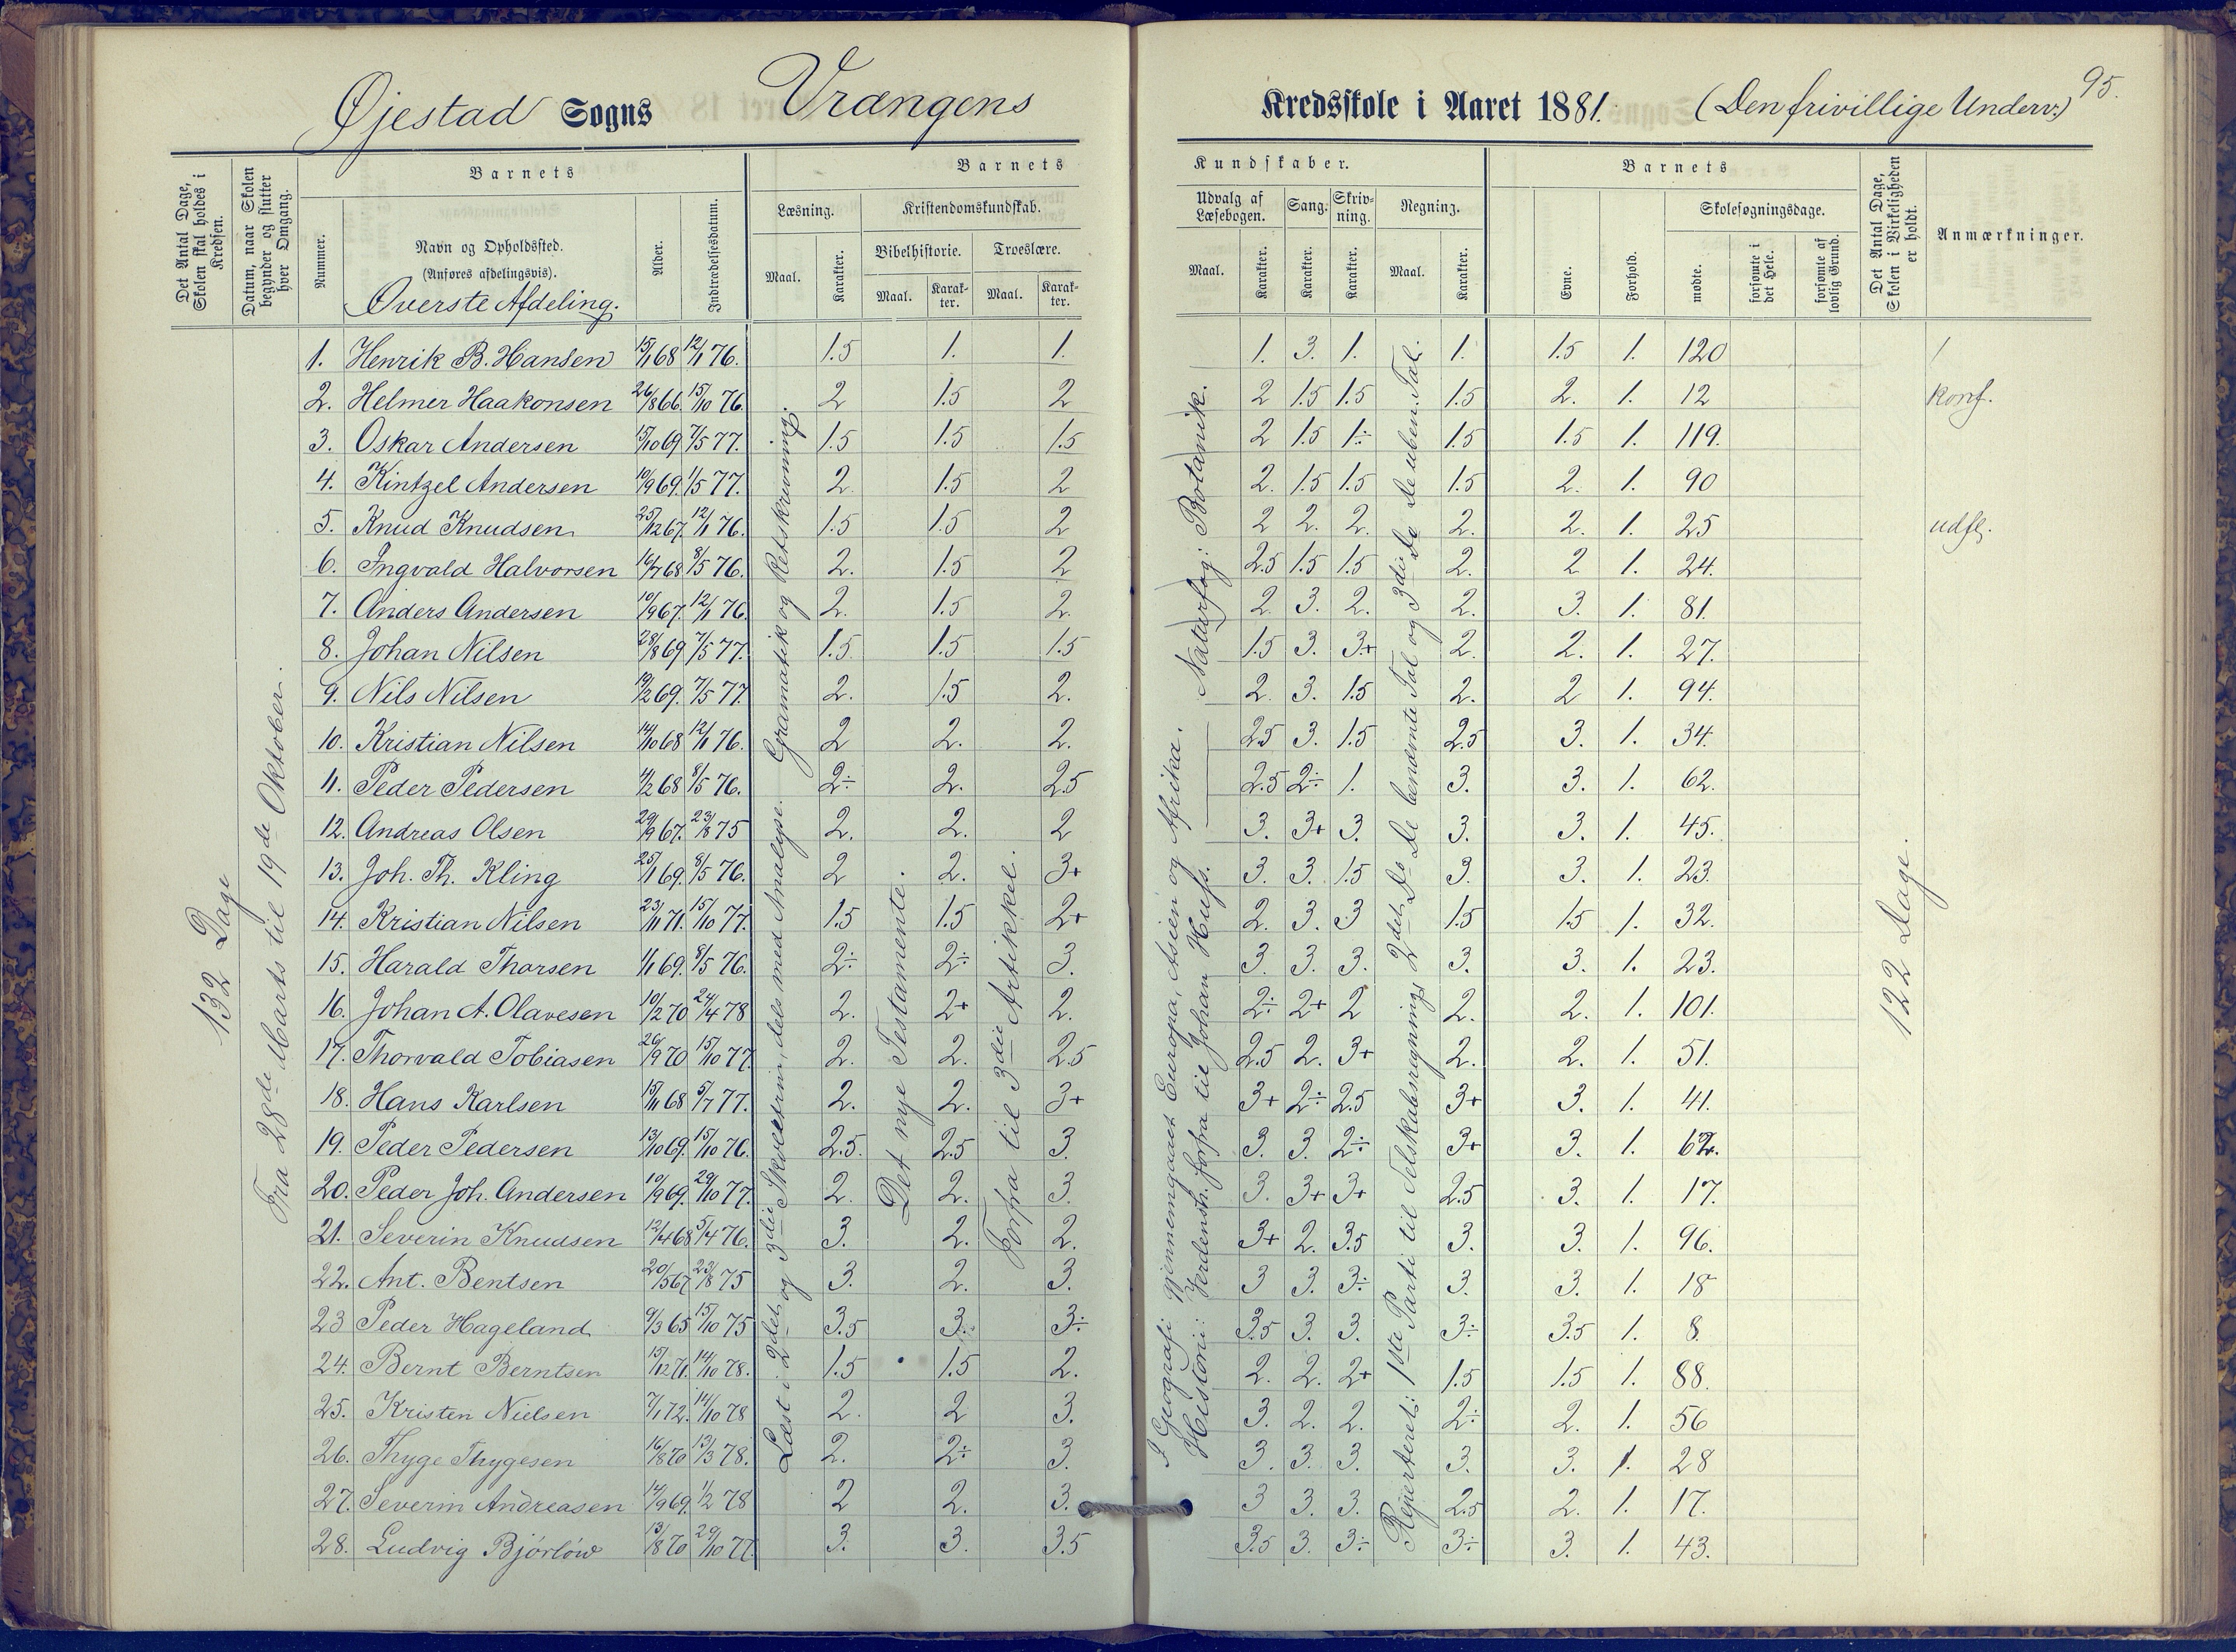 95.
Øjestad Sogns Vrangens Kredsskole i Aaret 1881. (Den frivillige Underv.)
Det Antal Dage, Skolen skal holdes i Kredsen.
Datum, naar Skolen begynder og slutter hver Omgang.
Barnets
Nummer.
Navn og Opholdssted.
(Anføres afdelingsvis).
Øverste Afdeling.
Alder.
Indtrædelsesdatum.
Barnets
Læsning.
Maal.
Karakter.
Kristendomskundskab.
Bibelhistorie.
Maal.
Karakter.
Troeslære.
Maal.
Karakter.
Kundskaber.
Udvalg af Læsebogen.
Maal.
Karakter.
Sang.
Karakter.
Skrivning.
Karakter.
Regning.
Maal.
Karakter.
Barnets
Evne.
Forhold.
Skolesøgningsdage.
mødte.
forsømte i det Hele.
forsømte af lovlig Grund.
Det Antal Dage, Skolen i Virkeligheden er holdt.
Anmærkninger.
132 Dage
Fra 28de Marts til 19de Oktober.
Læst i 2det og 3die Skoletrin, dels med Analyse. Gramatik og Retskrivning.
Det nye Testamente.
Forfra til 3die Artikkel.
I Geografi gjennemgaaet Europa, Asien og Afrika.
Historie: Verdensh. forfra til Johan Huss.
Naturfag: Botanik.
Repeteret: 1ste Parti til Selskabsregning; 2det Do De benævnte Tal og 3die Do De uben. Tal.
122 Dage.
1. Henrik B. Hansen 15/1 68 12/1 76. 1.5 1. 1. 1. 3. 1. 1. 1.5 1. 120
2. Helmer Haakonsen 26/8 66. 15/10 76. 2 1.5 2 2 1.5 1.5 1.5 2. 1. 12 konf.
3. Oskar Andersen 15/10 69 7/5 77. 1.5 1.5 1.5 2 1.5 1÷ 1.5 1.5 1. 119.
4. Kintzel Andersen 10/9 69. 1/5 77. 2. 1.5 2 2. 1.5 1.5 1.5 2. 1. 90
5. Knud Knudsen 25/12 67. 12/1 76. 1.5 1.5 2 2 2. 2. 2. 2. 1. 25 udfl.
6. Ingvald Halvorsen 16/7 68 8/5 76. 2. 1.5 2 2.5 1.5 1.5 2. 2 1. 24.
7. Anders Andersen 10/9 67. 12/1 76. 2. 1.5 2. 2 3. 2. 2. 3. 1. 81.
8. Johan Nilsen 28/8 69 7/5 77. 1.5 1.5 1.5 1.5 3. 3+ 2. 2. 1. 27.
9. Nils Nilsen 19/2 69. 7/5 77. 2. 1.5 2. 2. 3. 1.5 2. 2 1. 94.
10. Kristian Nilsen 14/10 68 12/1 76. 2 2. 2. 2.5 3. 1.5 2.5 3. 1. 34.
11. Peder Pedersen 4/2 68 8/5 76. 2÷ 2. 2.5 2.5 2÷ 1. 3. 3. 1. 62.
12. Andreas Olsen 29/9 67. 23/8 75 2. 2. 2 3. 3+ 3. 3. 3. 1. 45.
13. Joh. Th. Kling 25/1 69. 8/5 76. 2 2. 3+ 3. 3. 1.5 3. 3. 1. 23.
14. Kristian Nilsen 23/11 71. 15/10 77. 1.5 1.5 2+ 2. 3. 3 1.5 1.5 1. 32.
15. Harald Thorsen 1/1 69. 8/5 76. 2÷ 2÷ 3. 3. 3. 3. 3. 3. 1. 23.
16. Johan A. Olavesen 10/2 70 24/4 78 2. 2+ 2. 2÷ 2+ 2 2. 2. 1. 101.
17. Thorvald Tobiasen 26/9 70 15/10 77 2. 2. 2.5 2.5 2. 3+ 2. 2. 1. 51.
18. Hans Karlsen 15/11 68 5/7 77. 2. 2. 3+ 3+ 2÷ 2.5 3+ 3. 1. 41.
19. Peder Pedersen 13/10 69. 15/10 76. 2.5. 2.5 3. 3. 3. 2÷ 3+ 3. 1. 62.
20. Peder Joh. Andersen 10/9 69. 29/10 77. 2. 2. 3. 3. 3+ 3+ 2.5 3. 1. 17.
21. Severin Knudsen 12/4 68 5/4 76. 3. 2. 2. 3+ 2. 3.5 3. 3. 1. 96.
22. Ant. Bentsen 20/5 67 23/8 75 3. 2. 3. 3 3. 3÷ 3. 3. 1. 18
23 Peder Hageland 9/3 65 15/10 75 3.5 3. 3÷ 3.5 3. 3. 3÷ 3.5 1. 8.
24. Bernt Berntsen 15/12 71. 14/10 78. 1.5 1.5 2. 2. 2. 2+ 1.5 1.5 1. 88.
25. Kristen Nielsen 7/1 72. 14/10 78 2. 2 3. 3. 2. 2. 2÷ 2. 1. 56
26. Thyge Thygesen 16/8 70 13/3 78. 2. 2÷ 3. 3. 3. 3. 3. 3. 1. 28
27. Severin Andreasen 14/9 69. 1/2 78 2 2. 3. 3 3. 3. 2.5 2. 1. 17.
28. Ludvig Bjørløw 13/8 70 29/10 77. 3. 3. 3.5 3.5 3. 3÷ 3÷ 3. 1. 43.